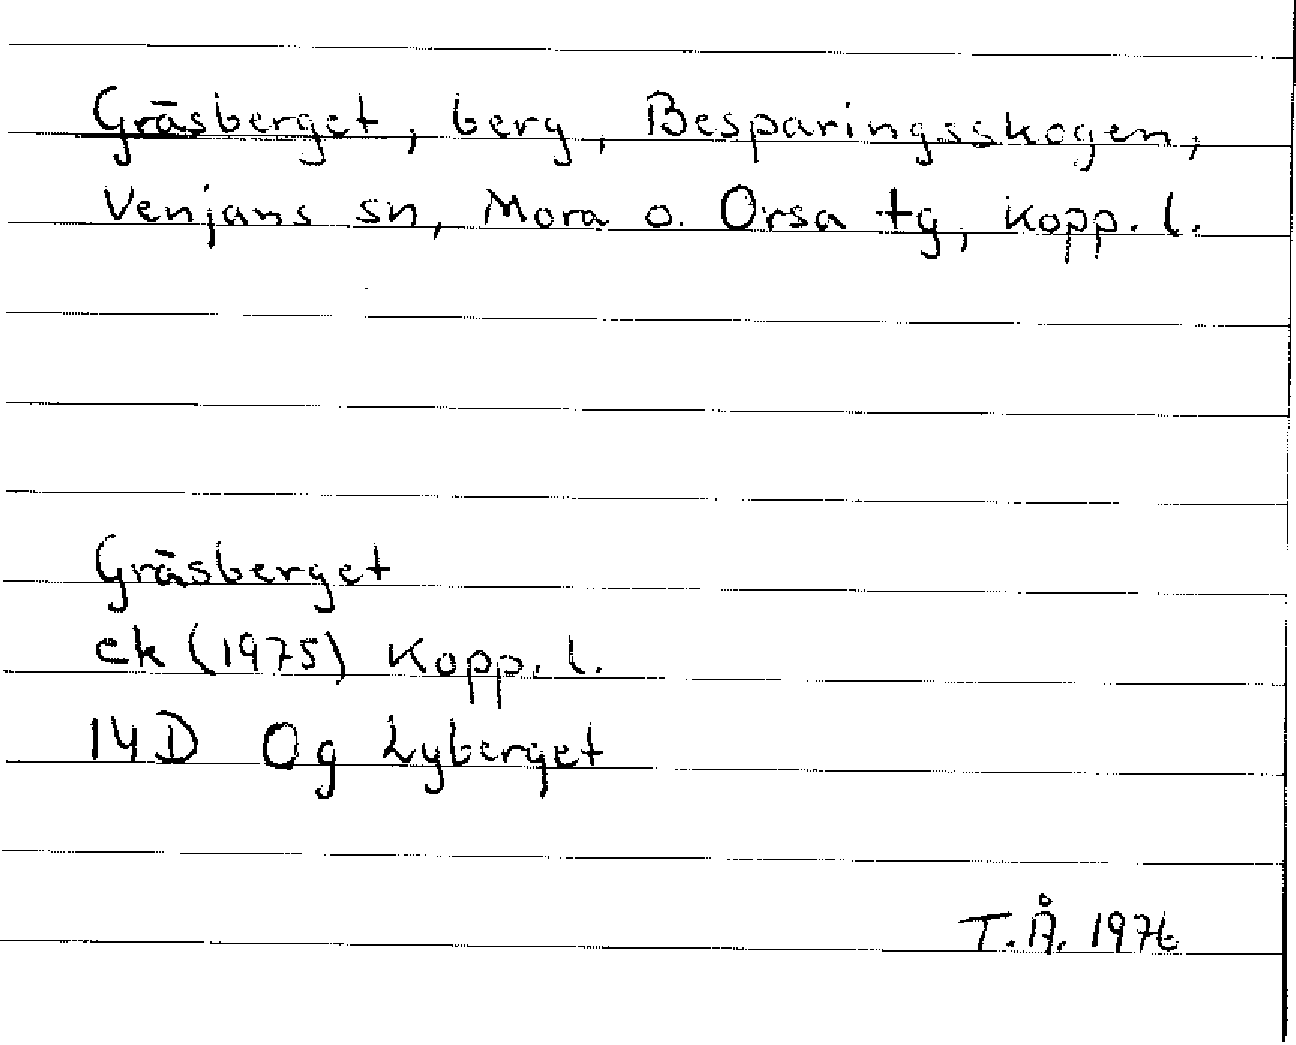 Gräsberget, berg, Besparingsskogen,
Venjans sn, Mora o. Orsa tg, Kopp. l.
Gräsberget
ek (1975) Kopp. l.
14D 0g Lyberget
T.Å. 1976